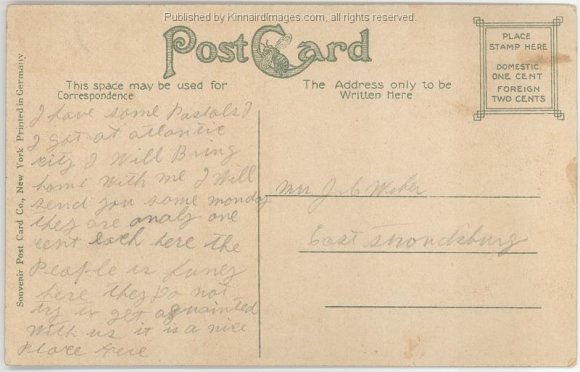 Published by KinnairdImages.com, all rights reserved.
Post Card
This space may be used for
Correspondence
The Address only to be
Written Here
PLACE
STAMP HERE
DOMESTIC
ONE CENT
FOREIGN
TWO CENTS
Souvenir Post Card Co., New York Printed in Germany
I have some Postals
I got at atlantic
city I Will Bring
home With me I Will
send you some monday
they are onaly one
cent Each here the
People is funey
here they Do not
try to get aquainted
With us it is a nice
Place here
Mr J C
East Stroudsburg